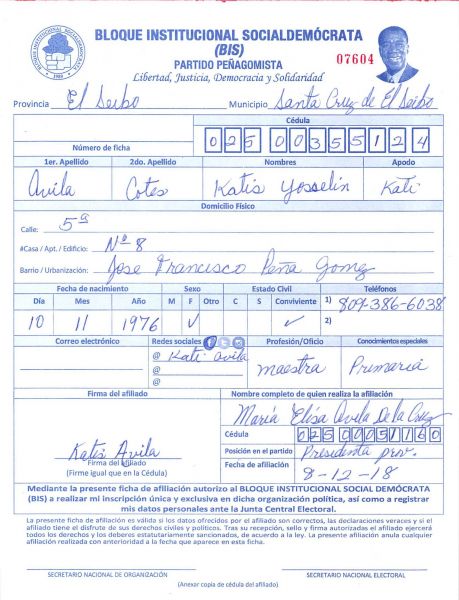 BLOQUE INSTITUCIONAL SOCIALDEMÓCRATA
(BIS)
PARTIDO PEÑAGOMISTA
Libertad, Justicia, Democracia y Solidaridad
07604
Provincia El Seibo Municipio Santa Cruz de El Seibo
Cédula
Número de ficha 025 0035512 4
1er. Apellido 2do. Apellido Nombres Apodo
Avila Cotes Katis Yosselin Kati
Domicilio Físico
Calle: 5ª
#Casa / Apt. / Edificio: Nº 8
Barrio / Urbanización: Jose Francisco Peña Gomez
Fecha de nacimiento Sexo Estado Civil Teléfonos
Día Mes Año M F Otro C S Conviviente 1) 809-386-6038
10 11 1976 ✓ ✓ 2)
Correo electrónico Redes sociales Profesión/Oficio Conocimientos especiales
@ Kati avila maestra Primaria
@
@
Firma del afiliado Nombre completo de quien realiza la afiliación
María Elisa Avila De la Cruz
Cédula 025 0003116 0
Katis Avila Posición en el partido Presidenta prov.
Firma del afiliado
(Firme igual que en la Cédula) Fecha de afiliación 8-12-18
Mediante la presente ficha de afiliación autorizo al BLOQUE INSTITUCIONAL SOCIAL DEMÓCRATA
(BIS) a realizar mi inscripción única y exclusiva en dicha organización política, así como a registrar
mis datos personales ante la Junta Central Electoral.
La presente ficha de afiliación es válida si los datos ofrecidos por el afiliado son correctos, las declaraciones veraces y si el
afiliado tiene el disfrute de sus derechos civiles y políticos. Tras su recepción, sello y firma autorizadas el afiliado ejercerá
todos los derechos y los deberes estatutariamente sancionados, de acuerdo a la ley. La presente afiliación anula cualquier
afiliación realizada con anterioridad a la fecha que aparece en esta ficha.
SECRETARIO NACIONAL DE ORGANIZACIÓN SECRETARIO NACIONAL ELECTORAL
(Anexar copia de cédula del afiliado)